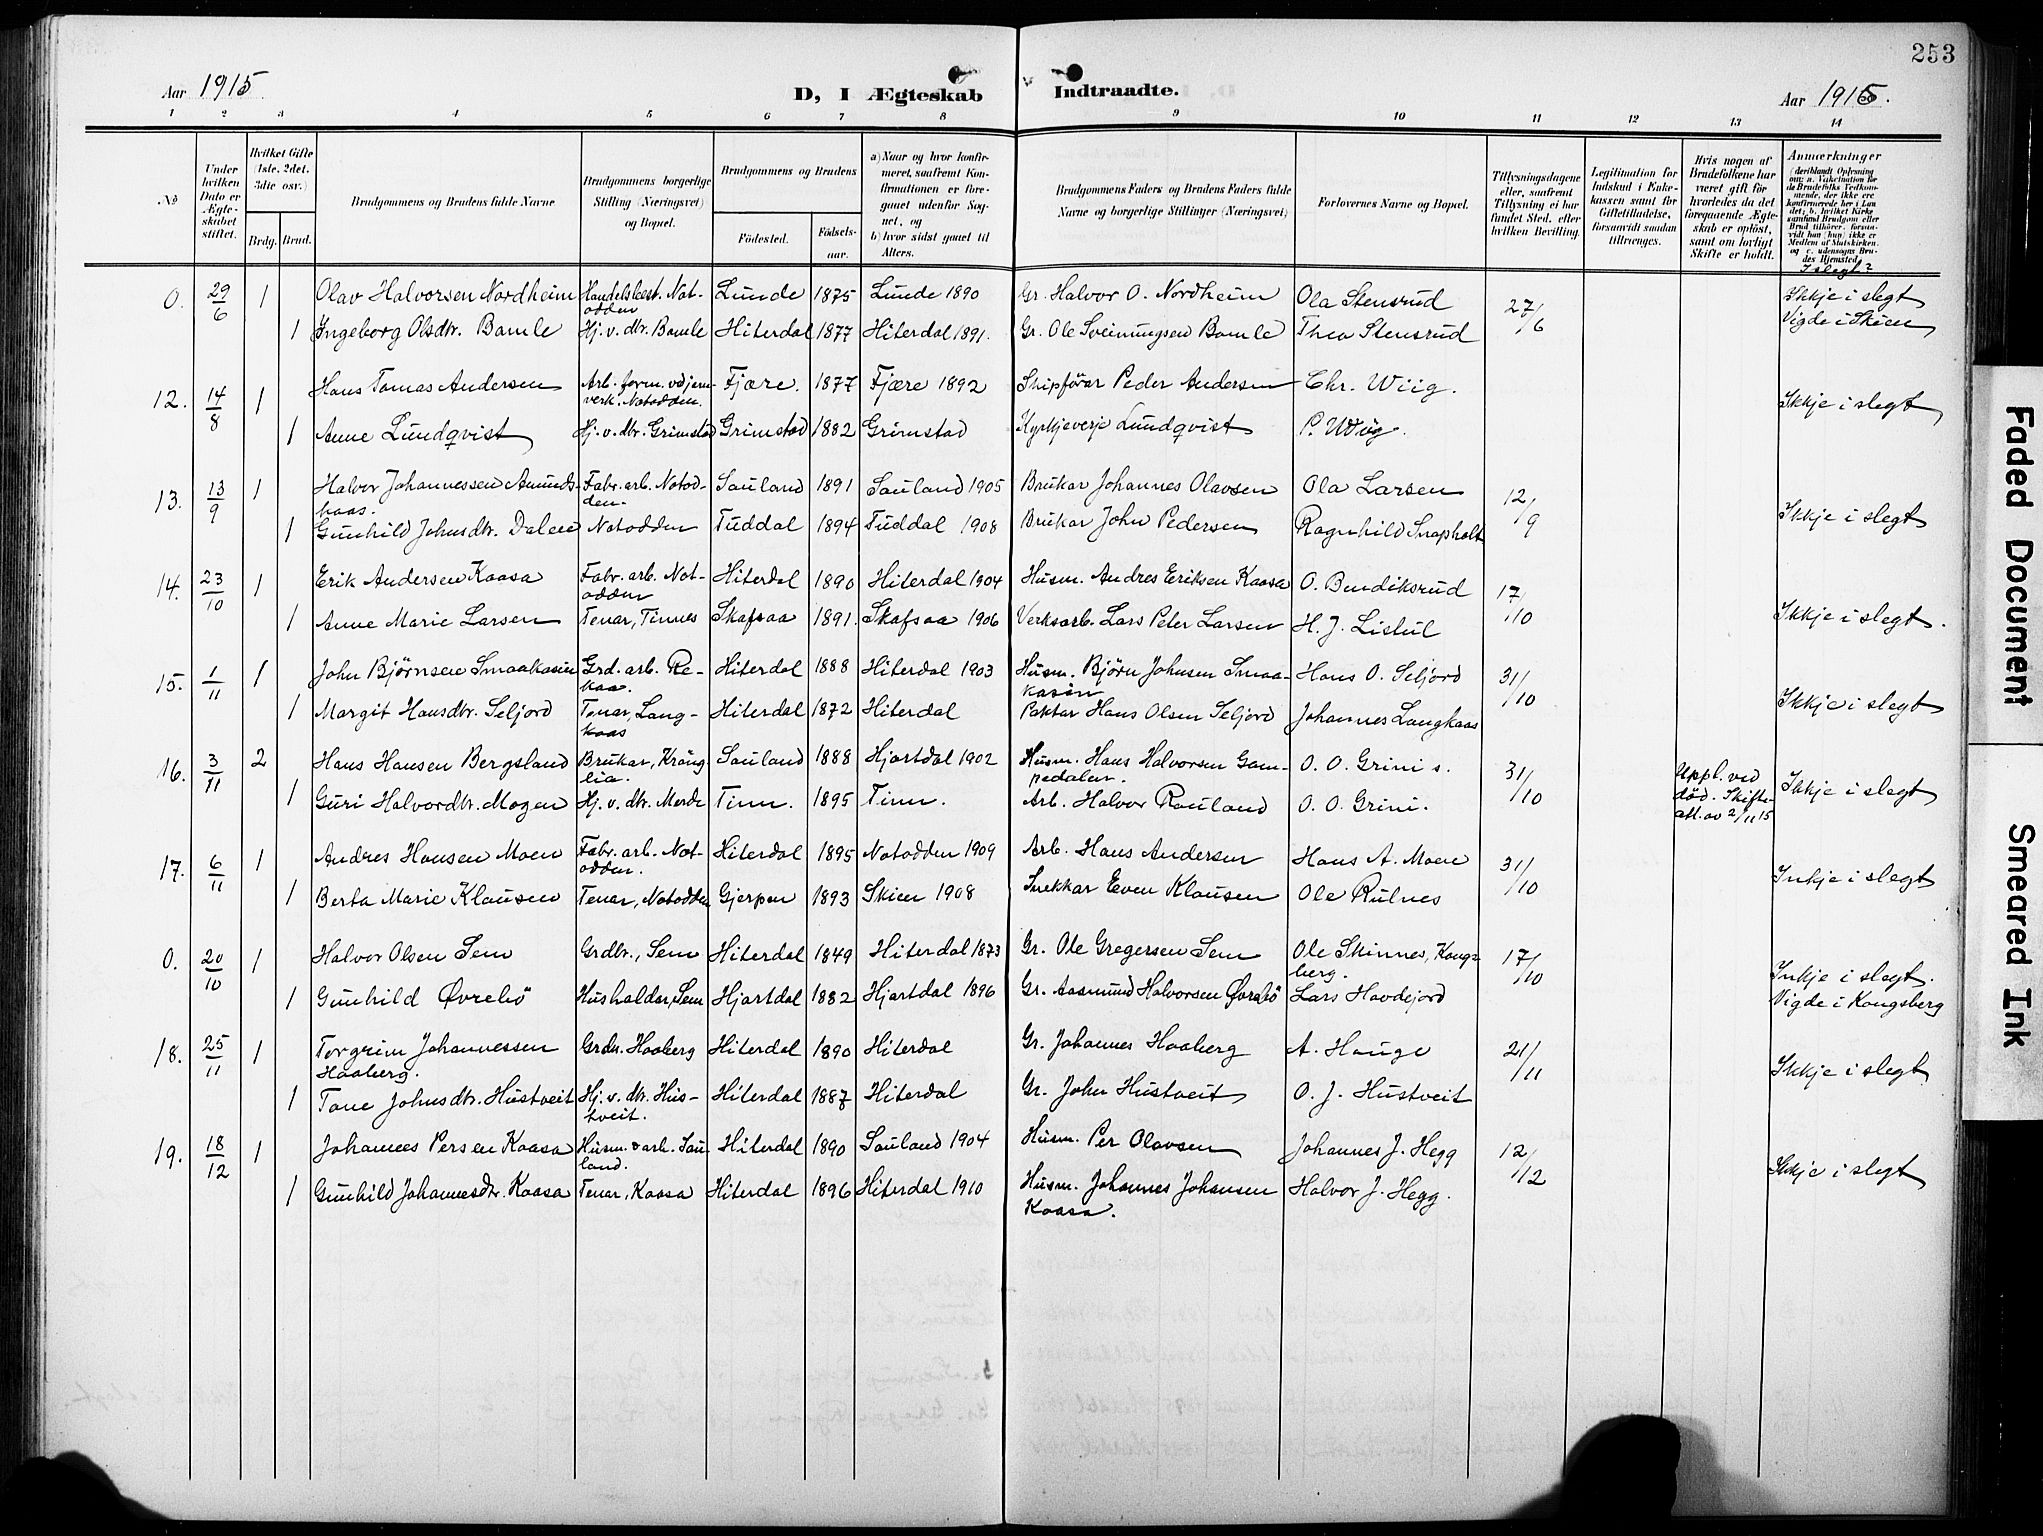 253
Aar 1915. D, I Ægteskab Indtraadte. Aar 1915.
1 2 3 4 5 6 7 8 9 10 11 12 13 14
No
Under hvilken Dato er Ægteskabet stiftet.
Hvilket Gifte (1ste, 2det, 3die osv.)
Brdg. Brud.
Brudgommens og Brudens fulde Navne
Brudgommens borgerlige Stilling (Næringsvei) og Bopæl.
Brudgommens og Brudens
Fødested. Fødsels-aar.
a) Naar og hvor konfirmeret, saafremt Konfirmationen er foregaaet udenfor Sognet, og
b) hvor sidst gaaet til Alters.
Brudgommens Faders og Brudens Faders fulde Navne og borgerlige Stillinger (Næringsvei)
Forlovernes Navne og Bopæl.
Tillysningsdagene eller, saafremt Tillysning ei har fundet Sted, efter hvilken Bevilling.
Legitimation for Indskud i Enkekassen samt for Giftetilladelse, forsaavidt saadan tiltrænges.
Hvis nogen af Brudefolkene har været gift før hvorledes da det foregaaende Ægteskab er opløst, samt om lovligt Skifte er holdt.
Anmærkninger
I slegt?
0. 29/6 1 Olav Halvorsen Nordheim Handelsbest. Notodden Lunde 1875 Lunde 1890 Gr. Halvor O. Nordheim Ola Stensrud 27/6 Ikkje i slegt
1 Ingeborg Olsdtr. Bamle Hj. v. dtr. Bamle Hiterdal 1877 Hiterdal 1891. Gr. Ole Sveinungsen Bamle Thea Stensrud Vigde i Skien
12. 14/8 1 Hans Tomas Andersen Arb. form. v. djernverk. Notodden. Fjære. 1877 Fjære 1892 Skipförar Peder Andersen Chr. Wiig. Ikkje i slegt
1 Anne Lundqvist Hj. v. dtr. Grimstad Grimstad 1882 Grimstad Kyrkjeverje Lundqvist P. Wiig.
13. 13/9 1 Halvor Johannessen Amundshaas. Fabr. arb. Notodden. Sauland 1891 Sauland 1905 Brukar Johannes Olavsen Ola Larsen 12/9 Ikkje i slegt
1 Gunhild Johnsdtr. Dalen Notodden Tuddal 1894 Tuddal 1908 Brukar John Pedersen Ragnhild Snapholt
14. 23/10 1 Erik Andersen Kaasa Fabr. arb. Notodden Hiterdal 1890 Hiterdal 1904 Husm. Andres Eriksen Kaasa O. Bendiksrud 17/10 Ikkje i slegt.
1 Anne Marie Larsen Tenar, Tinnes Skafsaa 1891. Skafsaa 1906 Verksarb. Lars Peter Larsen H. J. Lislul
15. 1/11 1 John Bjørnsen Smaakasin Grd. arb. Rekaa. Hiterdal 1888 Hiterdal 1903 Husm. Bjørn Johnsen Smaakasin Hans O. Seljord 31/10 Ikkje i slegt
1 Margit Hansdtr. Seljord Tenar, Langkaas Hiterdal 1872 Hiterdal Paktar Hans Olsen Seljord Johannes Langkaas
16. 3/11 2 Hans Hansen Bergsland Brukar, Kränglia. Sauland 1888 Hjartdal 1902 Husm. Hans Halvorsen Gampedalen. O. O. Grini s. 31/10 Uppl. ved død. Skifteatt. av 2/11 15 Ikkje i slegt
1 Guri Halvordtr. Mogen Hj. v. dtr. Merde Tinn. 1895 Tinn. Arb. Halvor Rauland O. O. Grini.
17. 6/11 1 Andres Hansen Moen Fabr. arb. Notodden. Hiterdal 1895 Notodden 1909 Arb. Hans Andersen Hans A. Moen 31/10 Inkje i slegt
1 Berta Marie Klausen Tenar, Notodden Gjerpen 1893 Skien 1908 Snekkar Even Klausen Ole Rulnes
0. 20/10 1 Halvor Olsen Sem Grdbr., Sem Hiterdal 1849 Hiterdal 1873 Gr. Ole Gregersen Sem Ole Skinnes, Kongsberg. 17/10 Inkje i slegt.
1 Gunhild Øvrebö Husholder, Sem Hjartdal 1882 Hjartdal 1896 Gr. Aasmund Halvorsen Øvrebö Lars Hovdejord Vigde i Kongsberg
18. 25/11 1 Torgrim Johannessen Haaberg. Grdbr. Haaberg Hiterdal 1890 Hiterdal Gr. Johannes Haaberg A. Hauge 21/11 Ikkje i slegt
1 Tone Johnsdtr. Hustveit Hj. v. dtr. Hustveit. Hiterdal 1887 Hiterdal Gr. John Hustveit O. J. Hustveit
19. 18/12 1 Johannes Persen Kaasa Husm. & arb. Sauland. Hiterdal 1890 Sauland 1904 Husm. Per Olavsen Johannes J. Hegg 12/12 Ikkje i slegt
1 Gunhild Johannesdtr. Kaasa Tenar, Kaasa Hiterdal 1896 Hiterdal 1910 Husm. Johannes Johansen Kaasa. Halvor J. Hegg.
Faded Document
Smeared Ink